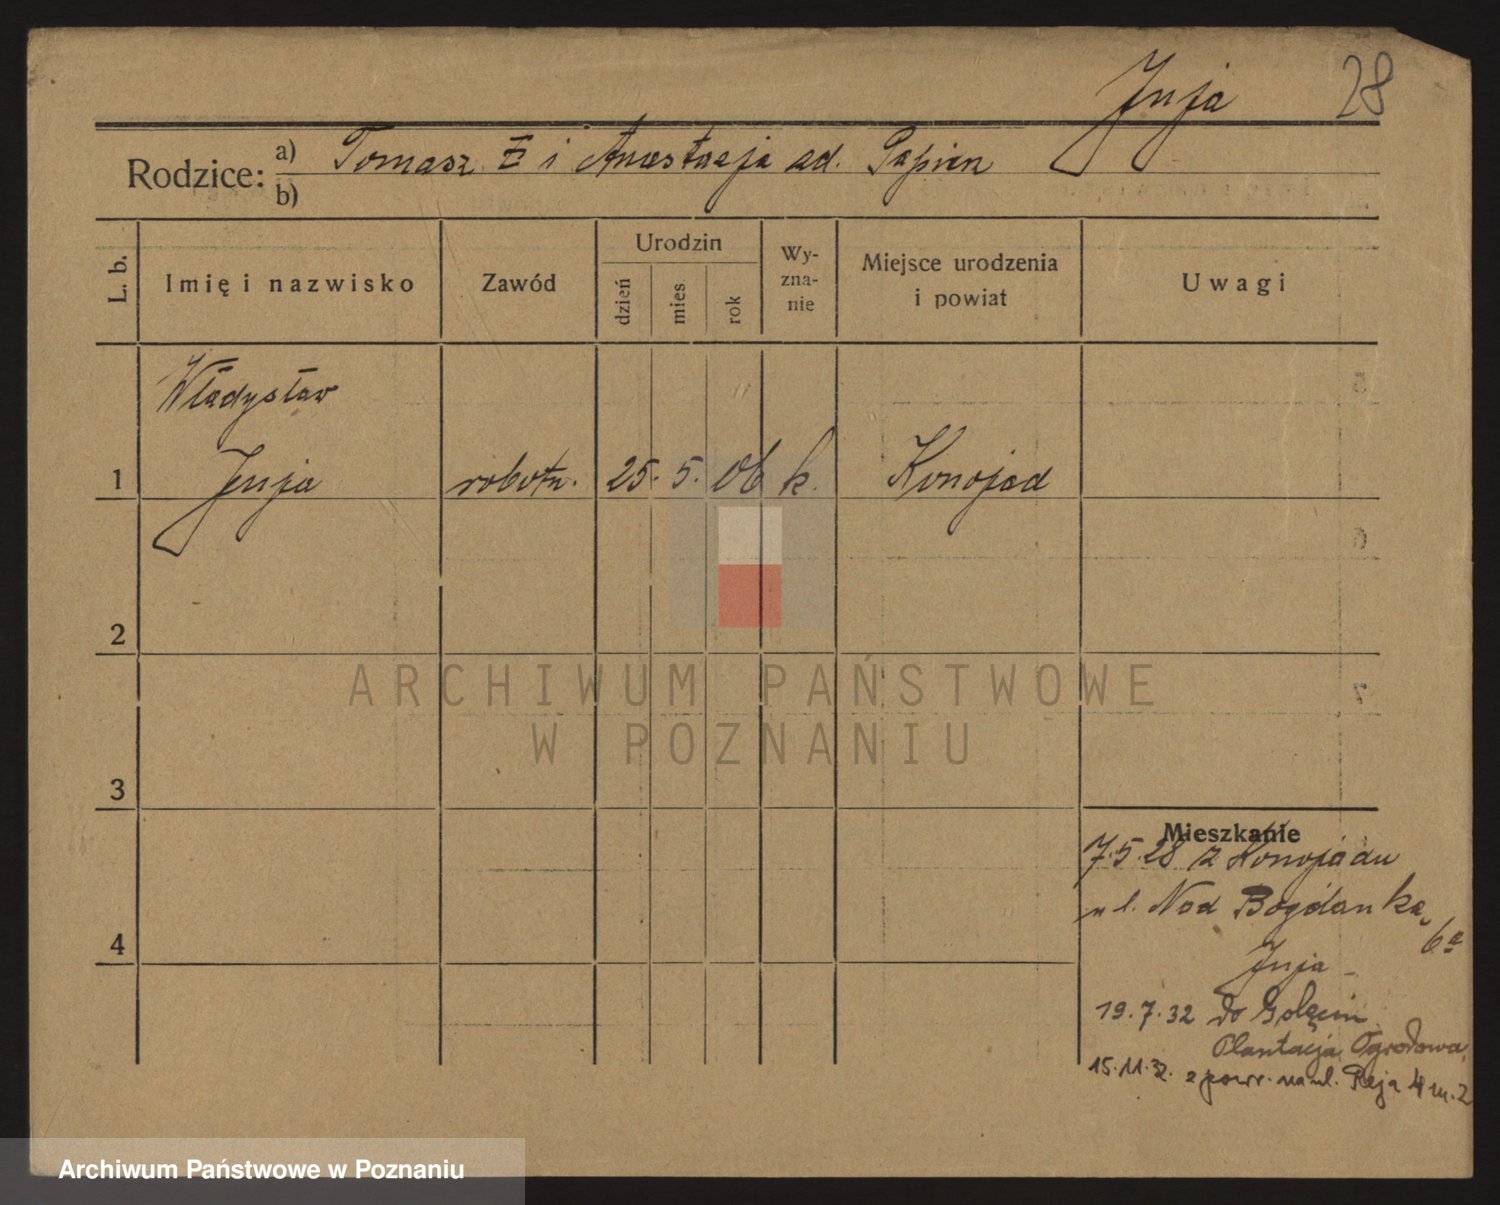 Juja
28
Rodzice: a) Tomasz i Anastazja zd.
b)
L. b.
Imię i nazwisko
Zawód
Urodzin
dzień
mies
rok
Wy-
zna-
nie
Miejsce urodzenia
i powiat
Uwagi
Władysław
1 Juja robotn. 25. 5. 06 k. Konojad
2
ARCHIWUM PAŃSTWOWE
W POZNANIU
3
Mieszkanie
7.5.28 z Konojadu
ul. Nad Bogdanką
6a
Juja
19.7.32 do Golęcin
Plantacja Ogrodowa
15.11.32. z powr. na ul. Reja 4 m. 2
4
Archiwum Państwowe w Poznaniu